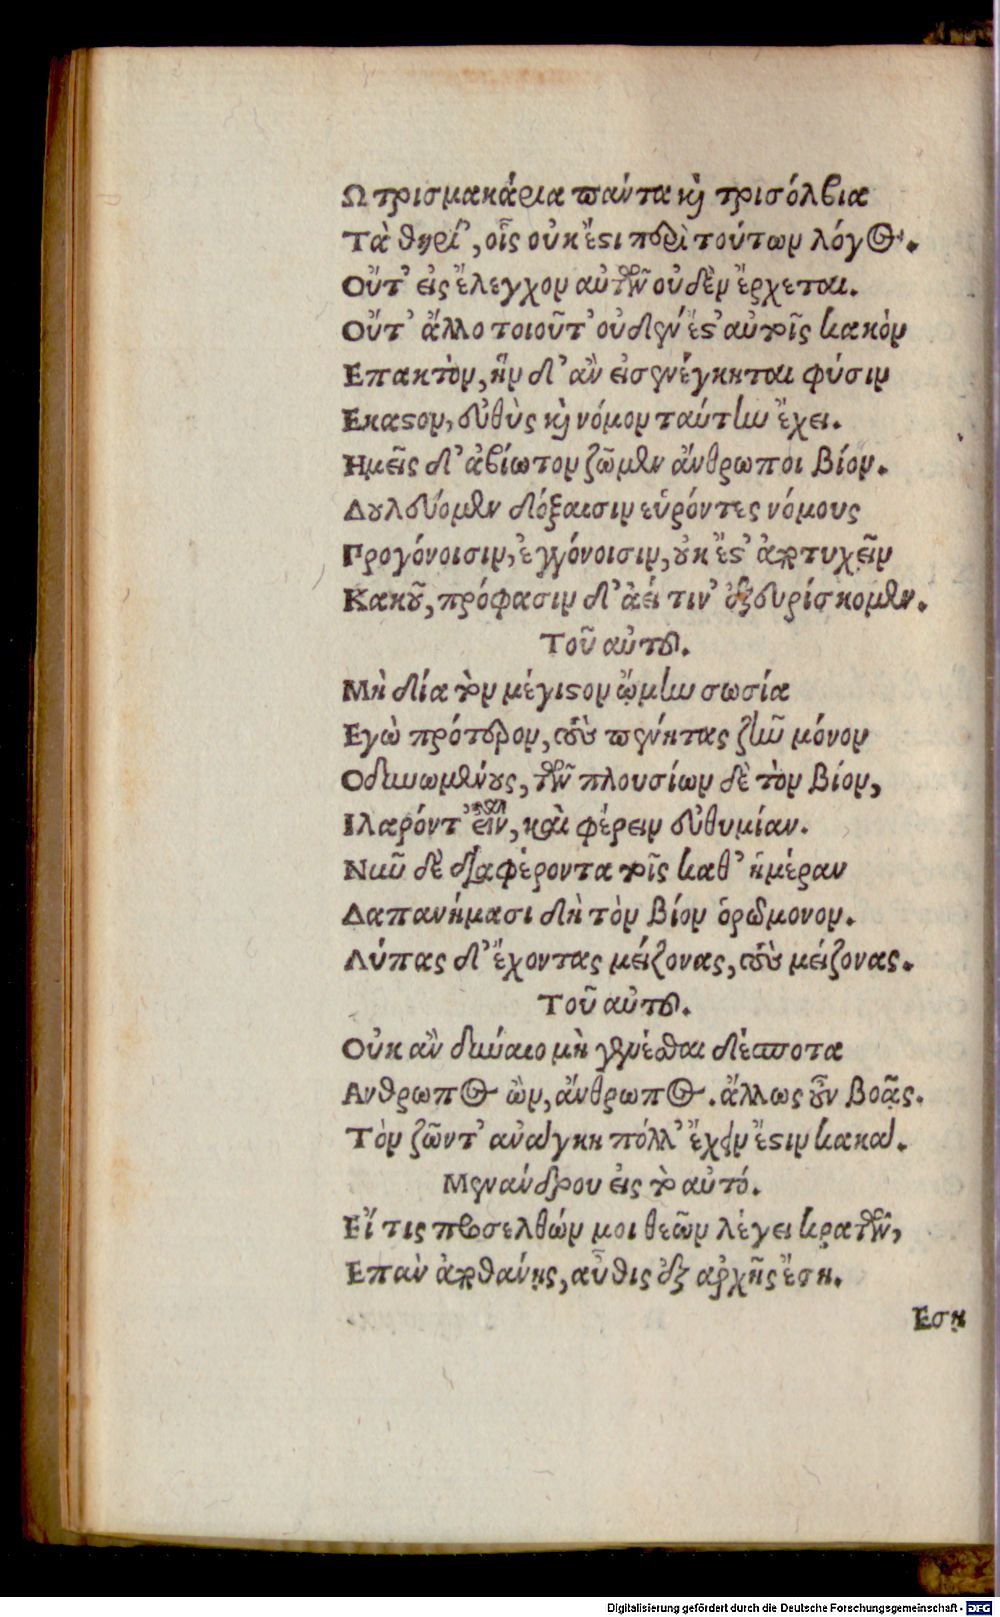 Ω τρισμακάρια πάντα καὶ τρισόλβια
Τὰ θηρί', οἷς οὐκ ἔστι περὶ τούτων λόγος.
Οὔτ' εἰς ἔλεγχον αὐτῶν οὐδὲν ἔρχεται.
Οὔτ' ἄλλο τοιοῦτ' οὐδὲν ἔστ' αὐτοῖς κακὸν
Επακτὸν, ἣν δ' ἂν εἰσενέγκηται φύσιν
Εκαστον, εὐθὺς καὶ νόμον ταύτην ἔχει.
Ημεῖς δ' ἀβίωτον ζῶμεν ἄνθρωποι βίον.
Δουλεύομεν δόξαισιν εὑρόντες νόμους
Προγόνοισιν, ἐγγόνοισιν, οὐκ ἔστ' ἀποτυχεῖν
Κακοῦ, πρόφασιν δ' ἀεί τιν' ἐξευρίσκομεν.
Τοῦ αὐτοῦ.
Μὴ δία τὸν μέγιστον ᾤμην σωσία
Εγὼ πρότερον, τοὺς πένητας ζῆν μόνον
Οδυνωμένους, τῶν πλουσίων δὲ τὸν βίον,
Ιλαρόν τ' εἶναι, καὶ φέρειν εὐθυμίαν.
Νῦν δὲ διαφέροντα τοῖς καθ' ἡμέραν
Δαπανήμασι δὴ τὸν βίον ὁρῶ μόνον.
Λύπας δ' ἔχοντας μείζονας, τοὺς μείζονας.
Τοῦ αὐτοῦ.
Οὐκ ἂν δύναιο μὴ γενέσθαι δέσποτα
Ανθρωπος ὢν, ἄνθρωπος. ἄλλως οὖν βοᾷς.
Τὸν ζῶντ' ἀνάγκη πόλλ' ἔχειν ἔστιν κακά.
Μενάνδρου εἰς τὸ αὐτό.
Εἴ τις προσελθών μοι θεῶν λέγει κρατῶν,
Επὰν ἀποθάνῃς, αὖθις ἐξ ἀρχῆς ἔσῃ.
Εσῃ
Digitalisierung gefördert durch die Deutsche Forschungsgemeinschaft - DFG